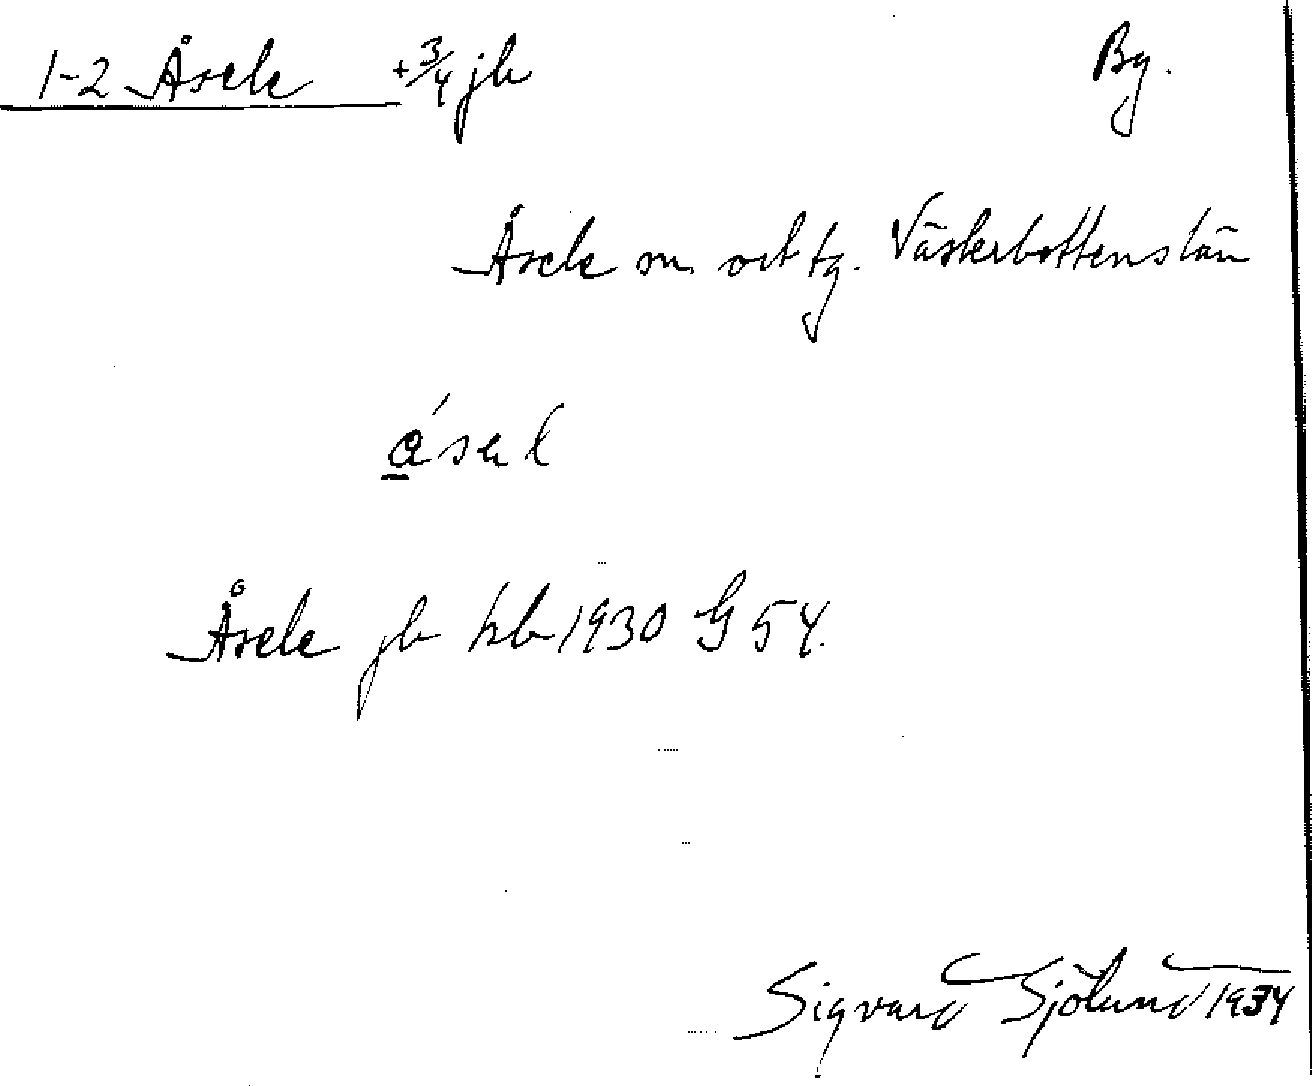 1-2 Åsele +3/4 jb Bg.
Åsele sn och tg. Västerbottens län
Åsele jb kb 1930 G 54.
Sigvard Sjölund 1934